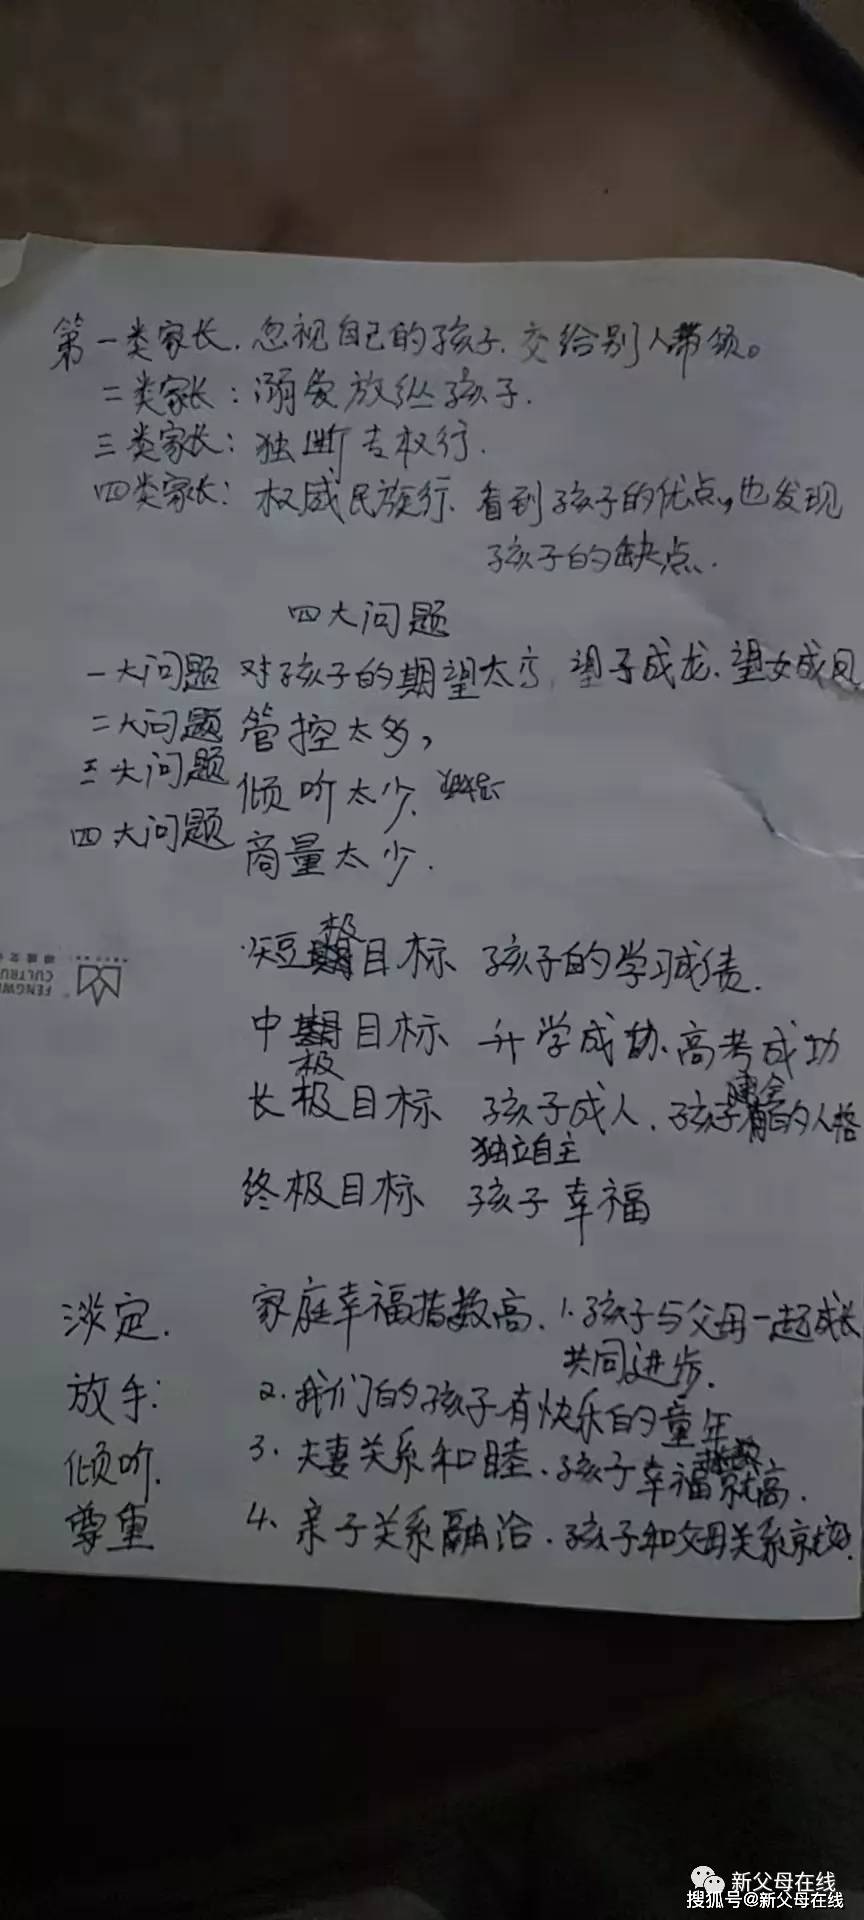 第一类家长.忽视自己的孩子.交给别人带领。
二类家长：溺爱放纵孩子.
三类家长：独断专权行.
四类家长：权威民族行.看到孩子的优点,也发现
孩子的缺点.
四大问题
一大问题 对孩子的期望太高,望子成龙.望女成凤
二大问题 管控太多,
三大问题 倾听太少.
四大问题 商量太少.
极
短目标 孩子的学习成绩.
中目标 升学成功.高考成功
极
长极目标 孩子成人.孩子的人格
健全
独立自主
终极目标 孩子幸福
FENGW
CULTRU
淡定. 家庭幸福指数高.1.孩子与父母一起成长
共同进步.
放手: 2.我们的孩子有快乐的童年
倾听. 3.夫妻关系和睦.孩子幸福就高.
尊重 4.亲子关系融洽.孩子和父母关系就好.
新父母在线
搜狐号@新父母在线